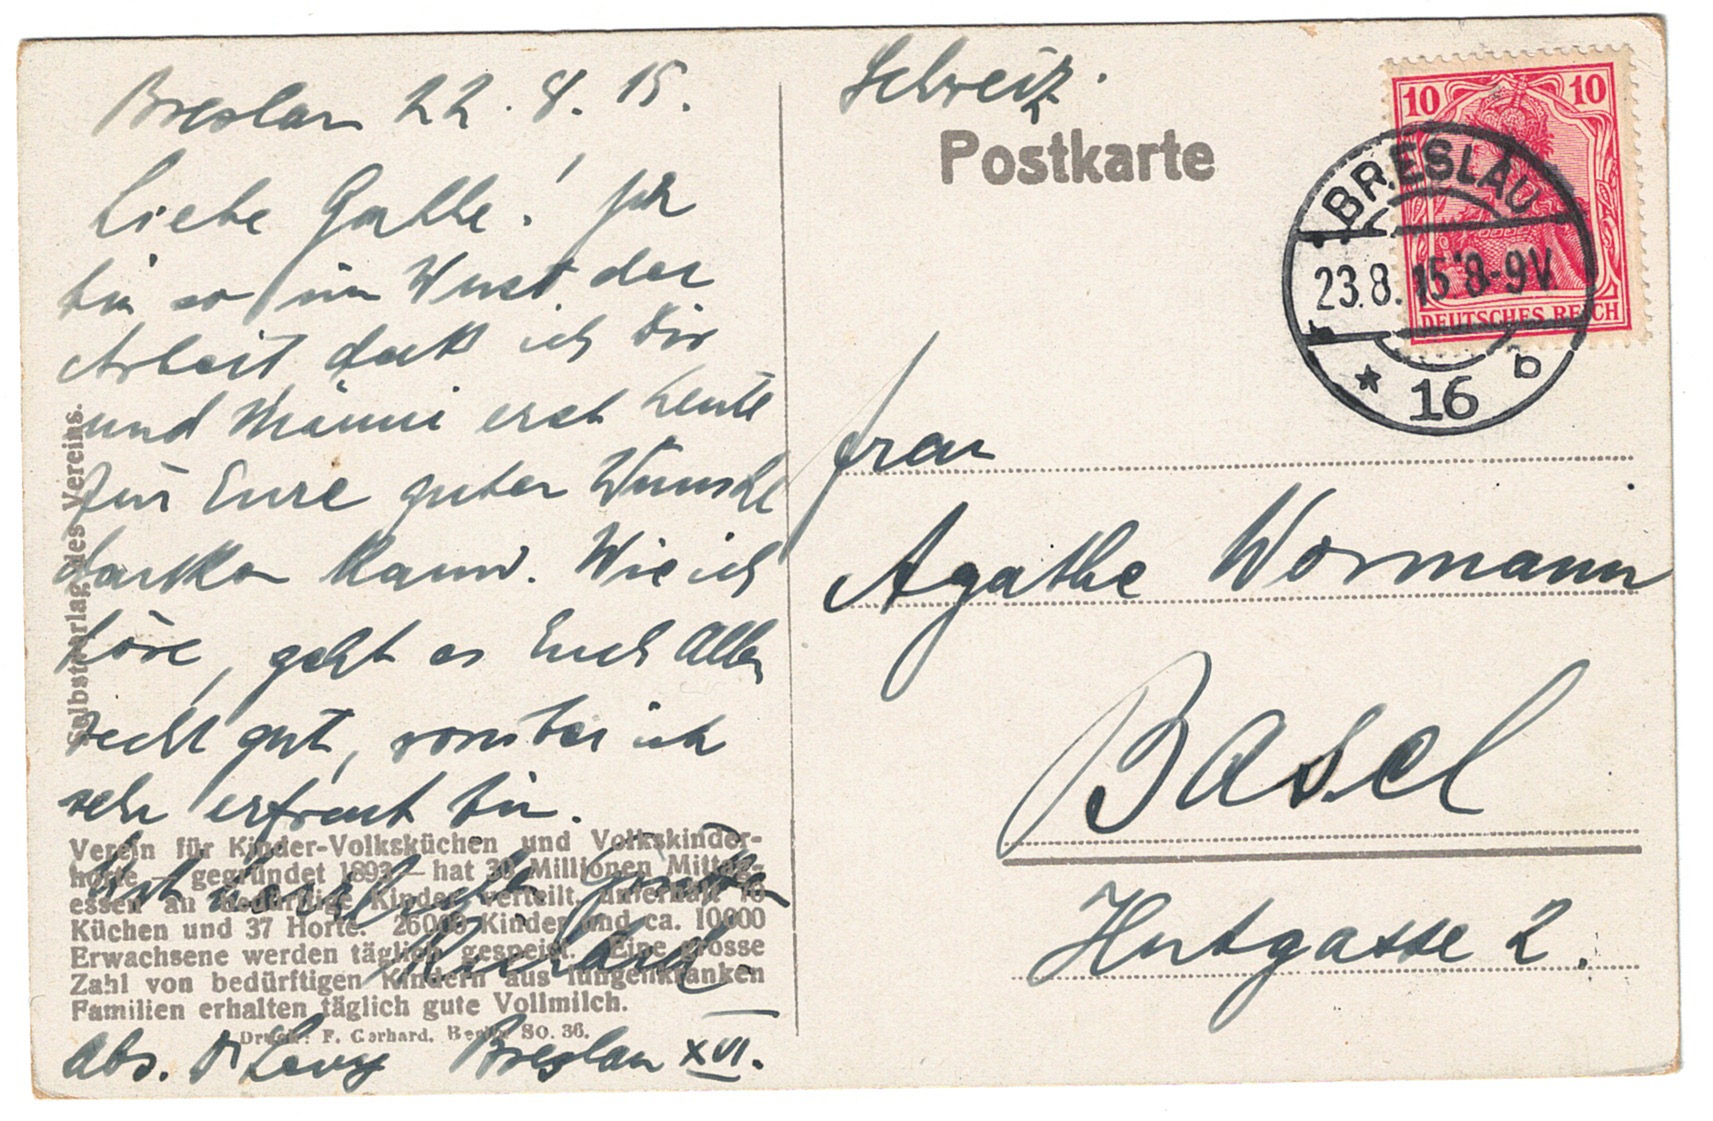 Breslau 22. 8. 15.
Liebe Gathe! Ich
bin so im Wust der
Arbeit daß ich Dir
und Männi erst heute
für Eure guten Wünsche
danken kann. Wie ich
höre, geht es Euch allen
recht gut, worüber ich
sehr erfreut bin.
Mit herzlichen Grüßen
Abs. Dr Levy Breslau XVI.
Selbstverlag des Vereins.
Verein für Kinder-Volksküchen und Volkskinder-
horte — gegründet 1893 — hat 30 Millionen Mittag-
essen an bedürftige Kinder verteilt, unterhält 16
Küchen und 37 Horte. 26000 Kinder und ca. 10000
Erwachsene werden täglich gespeist. Eine grosse
Zahl von bedürftigen Kindern aus lungenkranken
Familien erhalten täglich gute Vollmilch.
Druck: F. Gerhard, Berlin SO. 36.
Schweiz.
Postkarte
10 10
DEUTSCHES REICH
BRESLAU
23.8.15 8-9V
* 16 b
Frau
Agathe Wormann
Basel
Hutgasse 2.